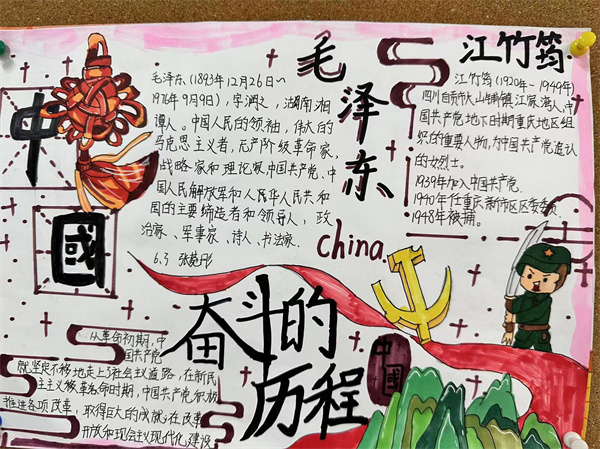 中
國
毛泽东(1893年12月26日~
1976年9月9日),字润之,湖南湘
潭人。中国人民的领袖,伟大的
马克思主义者,无产阶级革命家,
战略家和理论家,中国共产党、中
国人民解放军和人民华人民共和
国的主要缔造者和领导人,政
治家、军事家、诗人、书法家.
6.3 张菀彤
毛泽东
China
江竹筠
江竹筠(1920年-1949年)
四川自贡市大山铺镇江家湾人,中
国共产党地下时期重庆地区组
织的重要人物,为中国共产党追认
的女烈士。
1939年加入中国共产党.
1940年任重庆新市区区委委
1948年被捕。
奋斗的
历程
中国
从革命初期,中
国共产党
就坚定不移地走上了社会主义道路,在新民
主主义革命时期,中国共产党积极
推进各项改革,取得巨大的成就,在改革
开放和现会主义现代化建设